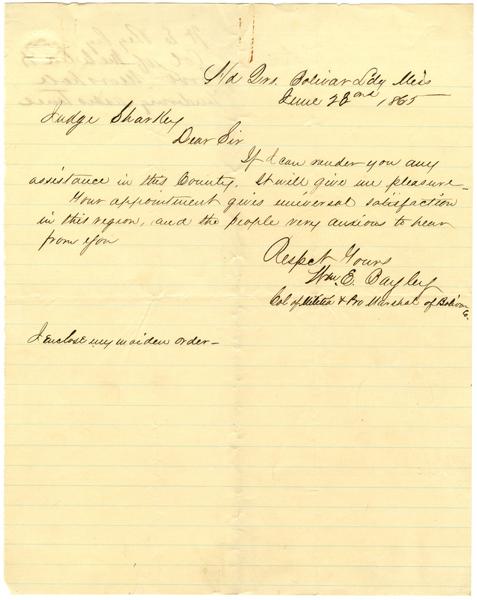 Hd Qrs. Bolivar Ldg Miss
June 22nd 1865
Judge Sharkey
Dear Sir
If I can render you any
assistance in this County. It will give me pleasure_
Your appointment gives universal satisfaction
in this region, and the people very anxious to hear
from you
Respect Yours
Wm. E. Bayley
Col of Militia & Pro Marshal of Bolivar
Co.
I enclose my maiden order_